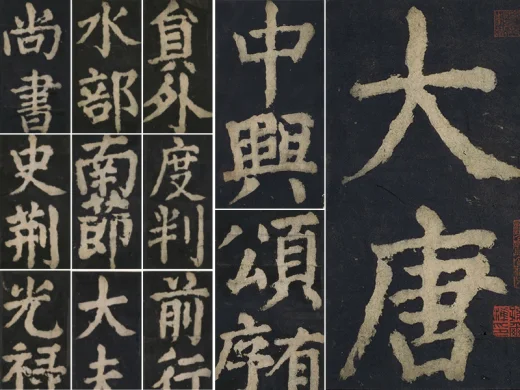 大唐
中興
頌有序
尚書
水部
貟外
史荆
南莭
度判
光禄
大夫
前行